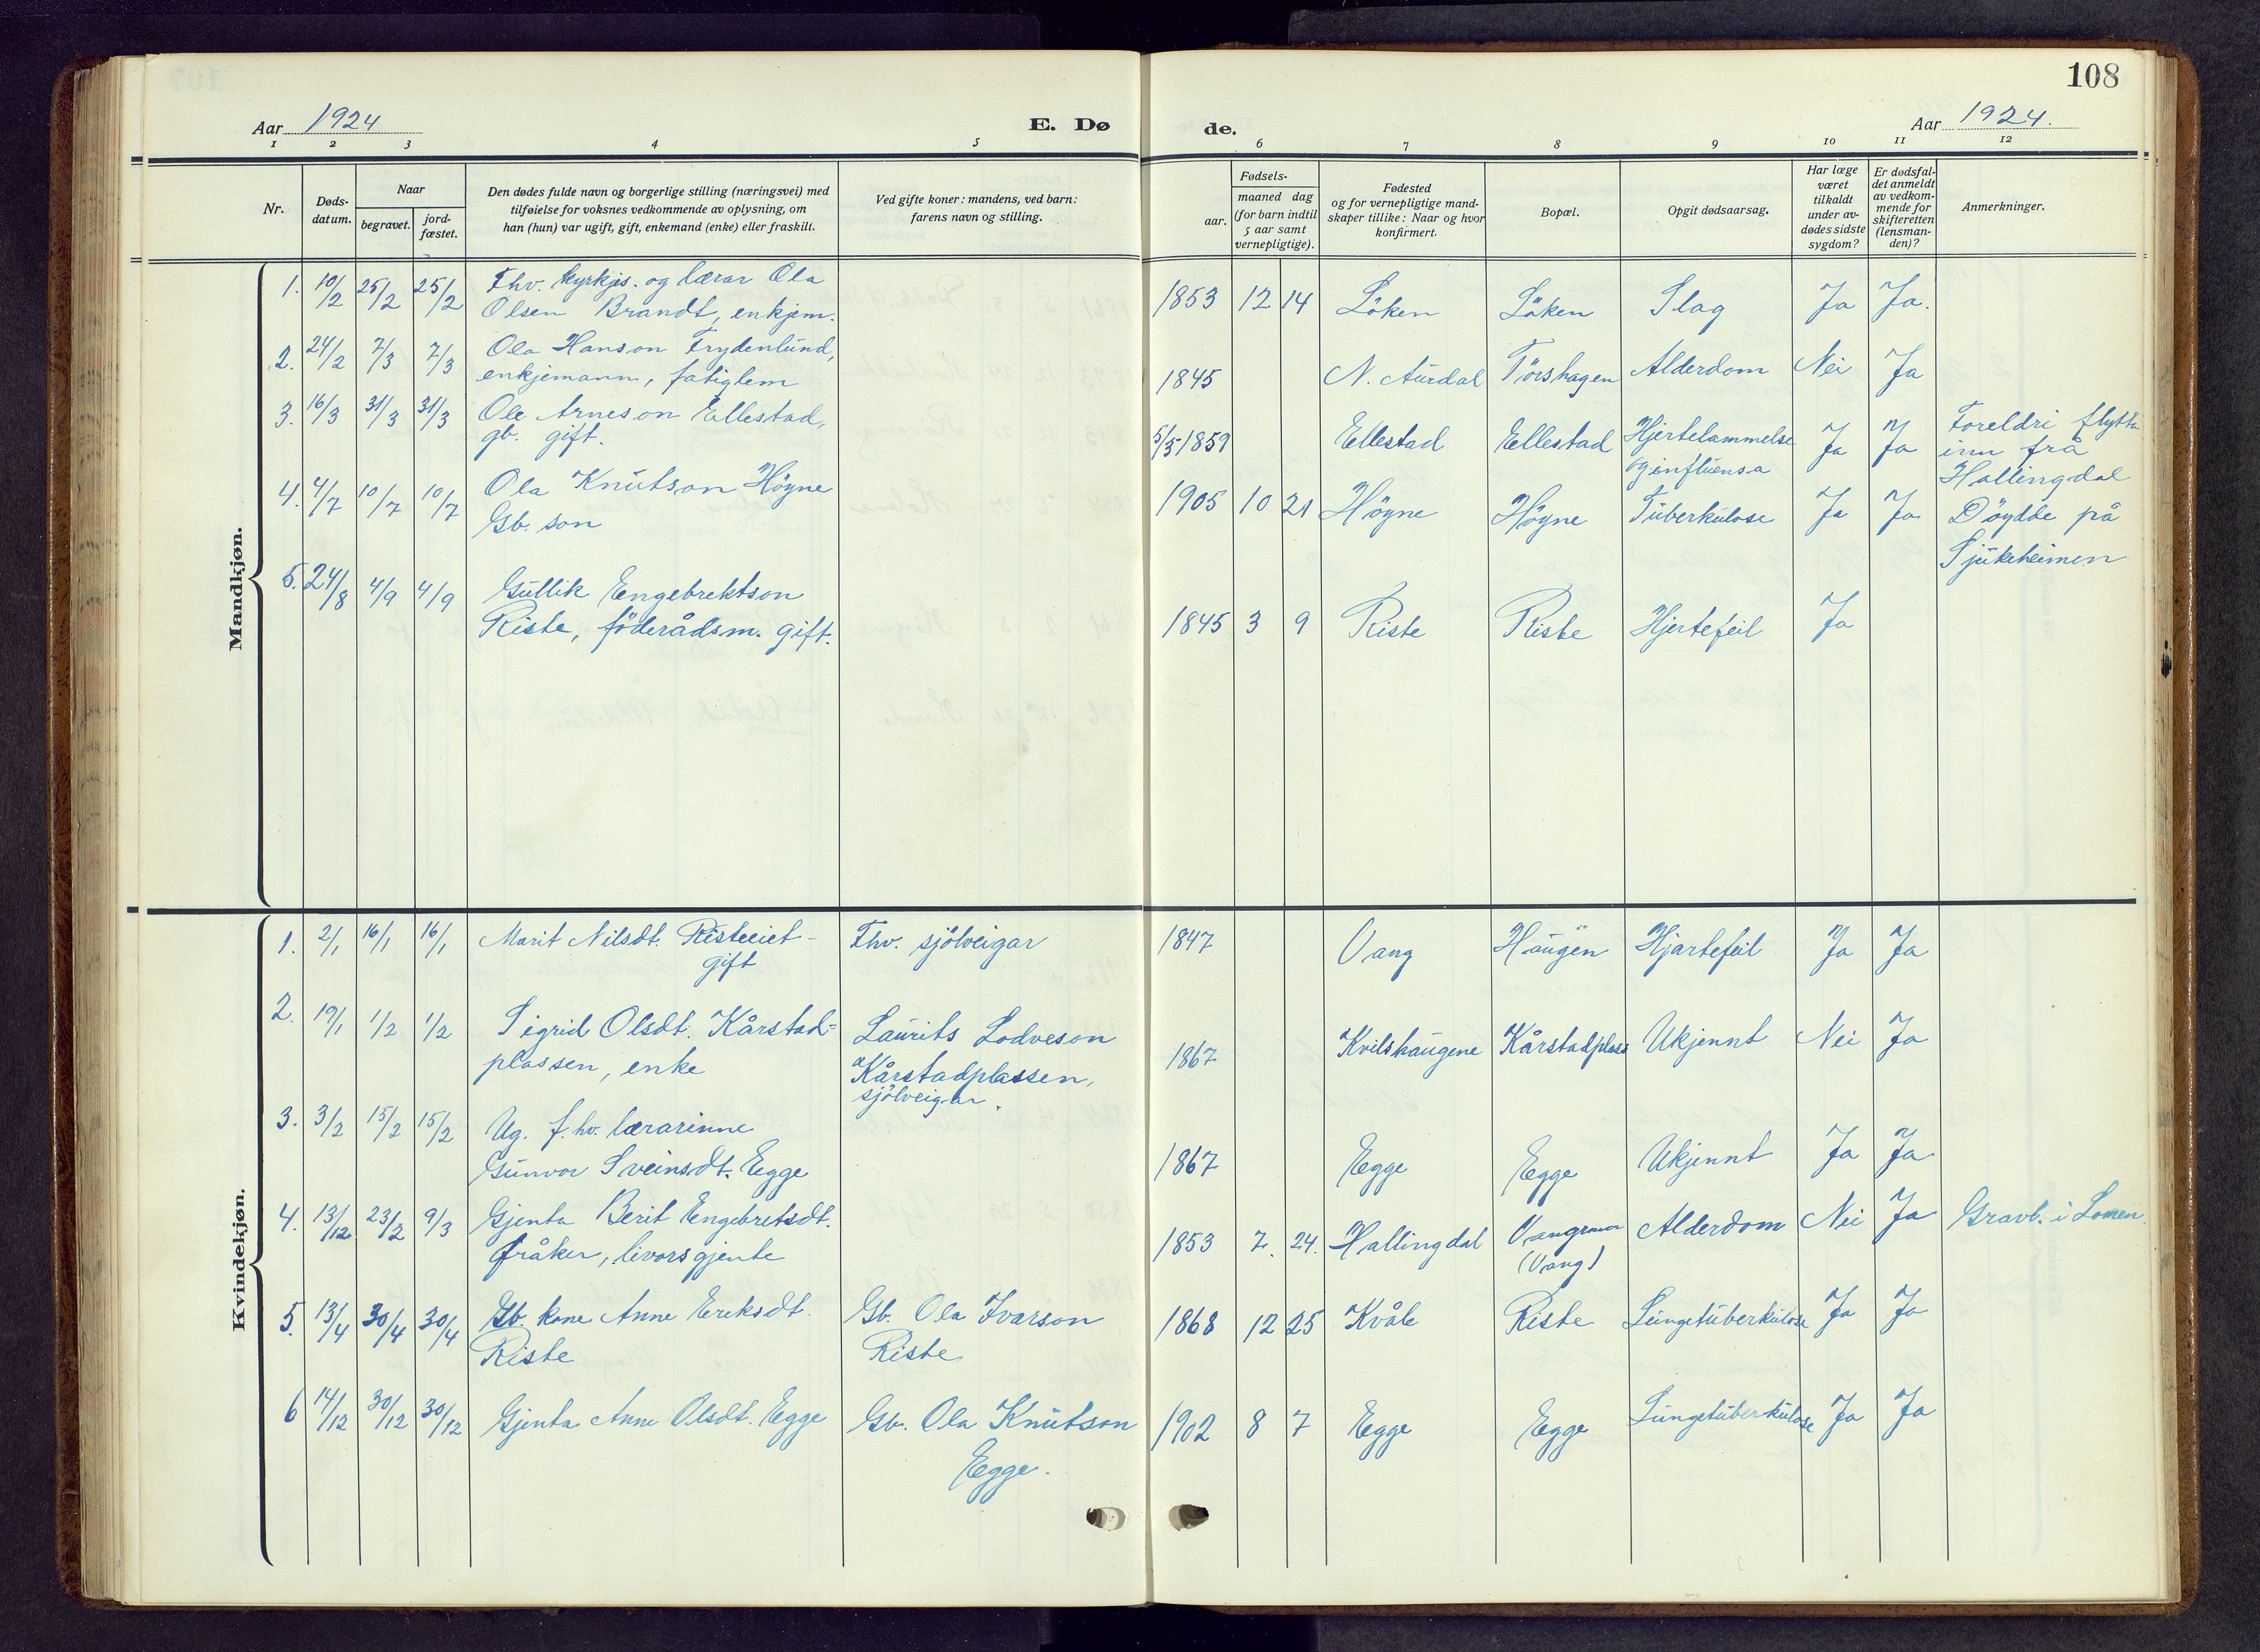 108
Aar 1924
E. Dø
de.
Aar 1924.
1 2 3 4 5 6 7 8 9 10 11 12
Nr.
Døds-
datum.
Naar
begravet.
jord-
fæstet.
Den dødes fulde navn og borgerlige stilling (næringsvei) med
tilføielse for voksnes vedkommende av oplysning, om
han (hun) var ugift, gift, enkemand (enke) eller fraskilt.
Ved gifte koner: mandens, ved barn:
farens navn og stilling.
Fødsels-
aar.
maaned dag
(for barn indtil
5 aar samt
vernepligtige).
Fødested
og for vernepligtige mand-
skaper tillike: Naar og hvor
konfirmert.
Bopæl.
Opgit dødsaarsag.
Har læge
været
tilkaldt
under av-
dødes sidste
sygdom?
Er dødsfal-
det anmeldt
av vedkom-
mende for
skifteretten
(lensman-
den)?
Anmerkninger.
Mandkjøn.
1. 10/2 25/2 25/2 Fhv. kyrkjes. og lærar Ola
Olsen Brandt, enkjem. 1853 12 14 Löken Löken Slag Ja Ja.
2. 24/2 7/3 7/3 Ola Hanson Frydenlund,
enkjemann, fatiglem 1845 N. Aurdal Törshagen Alderdom Nei Ja
3. 16/3 31/3 31/3 Ole Arneson Ellestad,
gb. gift. 5/5 1859 Ellestad Ellestad Hjertelammelse
og influensa Ja Ja Foreldri flytte
inn frå
Hallingdal
4. 4/7 10/7 10/7 Ola Knutson Högne
Gb. son 1905 10 21 Högne Högne Tuberkulose Ja Ja Döydde på
Sjukeheimen
5. 24/8 4/9 4/9 Gullik Engebrektson
Riste, föderådsm. gift. 1845 3 9 Riste Riste Hjertefeil Ja
Kvindekjøn.
1. 2/1 16/1 16/1 Marit Nilsdt. Risteeiet-
gift Fhv. sjölveigar 1847 Vang Haugen Hjartefeil Ja Ja
2. 19/1 1/2 1/2 Sigrid Olsdt. Kårstad=
plassen, enke Laurits Lodveson
Kårstadplassen,
sjölveigar. 1867 Kvilshaugene Kårstadplass Ukjennt Nei Ja
3. 3/2 15/2 15/2 Ug. f.hv. lærarinne
Gunvor Sveinsdt. Egge 1867 Egge Egge Ukjennt Ja Ja
4. 13/12 23/2 9/3 Gjenta Berit Engebretsdt.
Fråker, livorsgjente 1853 7. 24. Hallingdal
(Vang) Alderdom Nei Ja Gravl. i Lomen
5. 13/4 30/4 30/4 Gb. kone Anne Eriksdt.
Riste Gb. Ola Ivarson
Riste 1868 12 25 Kvåle Riste Lungetuberkulose Ja Ja
6 14/12 30/12 30/12 Gjenta Anne Olsdt. Egge Gb. Ola Knutson
Egge. 1902 8 7 Egge Egge Lungetuberkulose Ja Ja